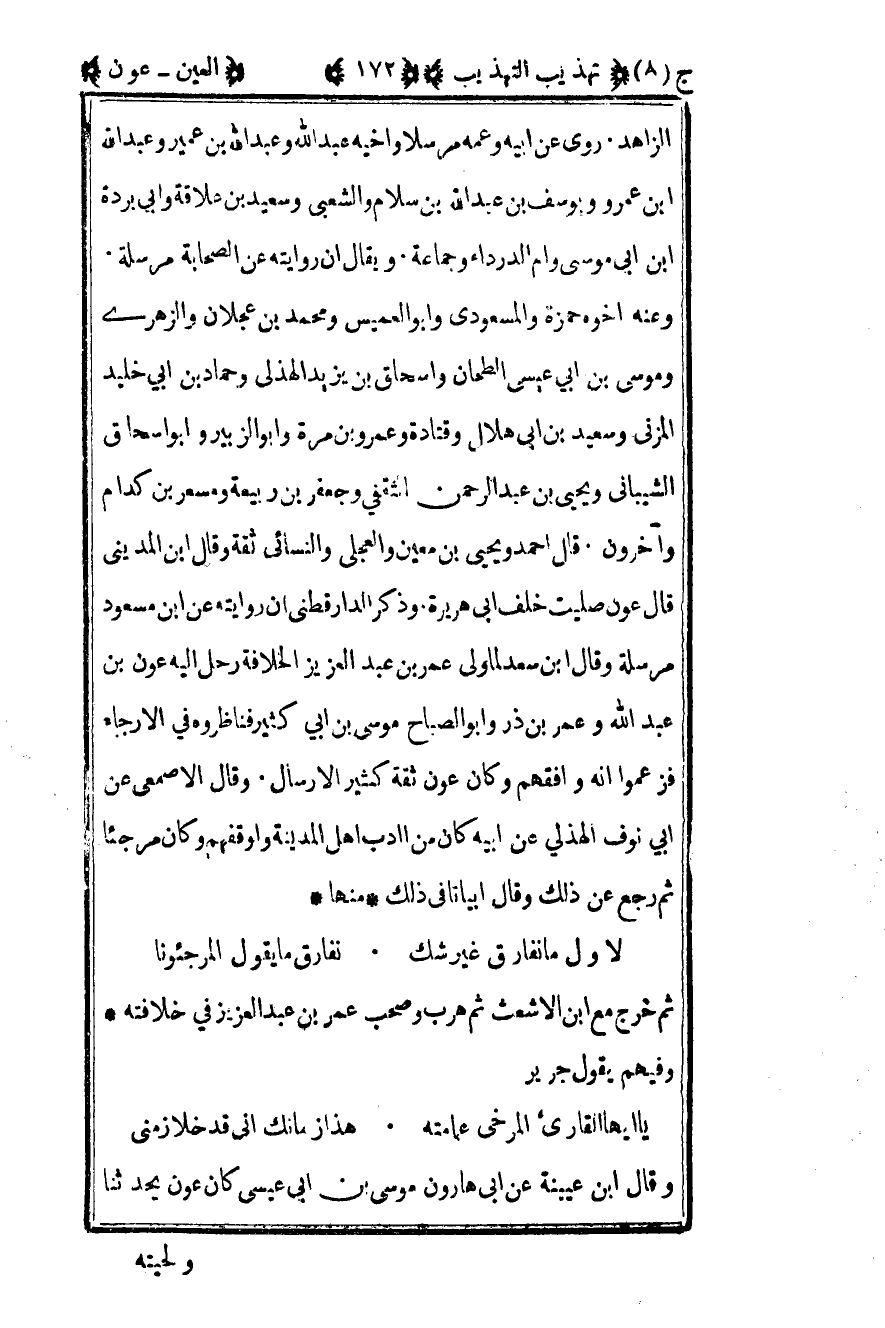 ج (٨) تهذيب التهذيب ١٧٢ العين - عون
الزاهد · روى عن ابيه وعمه مرسلا واخيه عبدالله وعبدالله بن عمير وعبدالله
ابن عمرو ويوسف بن عبدالله بن سلام والشعبي وسعيد بن علاقة وابي بردة
ابن ابي موسى وام الدرداء وجماعة · ويقال ان روايته عن الصحابة مرسلة ·
وعنه اخوه حمزة والمسعودى وابوالعميس ومحمد بن عجلان والزهرے
وموسى بن ابي عيسى الطحان واسحاق بن يزيد الهذلى وحماد بن ابي خليد
المزنى وسعيد بن ابى هلال وقتادة وعمرو بن مرة وابوالزبير و ابواسحاق
الشيبانى ويحيى بن عبدالرحمن الثقفي وجعفر بن ربيعة ومسعر بن كدام
وآخرون · قال احمد ويحيى بن معين والعجلى والنسائى ثقة وقال ابن المدينى
قال عون صليت خلف ابى هريرة · وذكر الدارقطنى ان روايته عن ابن مسعود
مرسلة وقال ابن سعد لما ولى عمر بن عبد العزيز الخلافة رحل اليه عون بن
عبد الله و عمر بن ذر وابوالصباح موسى بن ابي كثير فناظروه في الارجاء
فزعموا انه وافقهم وكان عون ثقة كثير الارسال · وقال الاصمعى عن
ابي نوف الهذلي عن ابيه كان من اادب اهل المدينة واوقفهم وكان مرجئا
ثم رجع عن ذلك وقال ابياتا فى ذلك * منها *
لاول مانفارق غير شك · نفارق مايقول المرجئونا
ثم خرج مع ابن الاشعث ثم هرب وصحب عمر بن عبدالعزيز في خلافته *
وفيهم يقول جرير
ياايها القارئ المرخى عمامته · هذا زمانك انى قد خلا زمنى
وقال ابن عيينة عن ابى هارون موسى بن ابي عيسى كان عون يحد ثنا
ولحيته